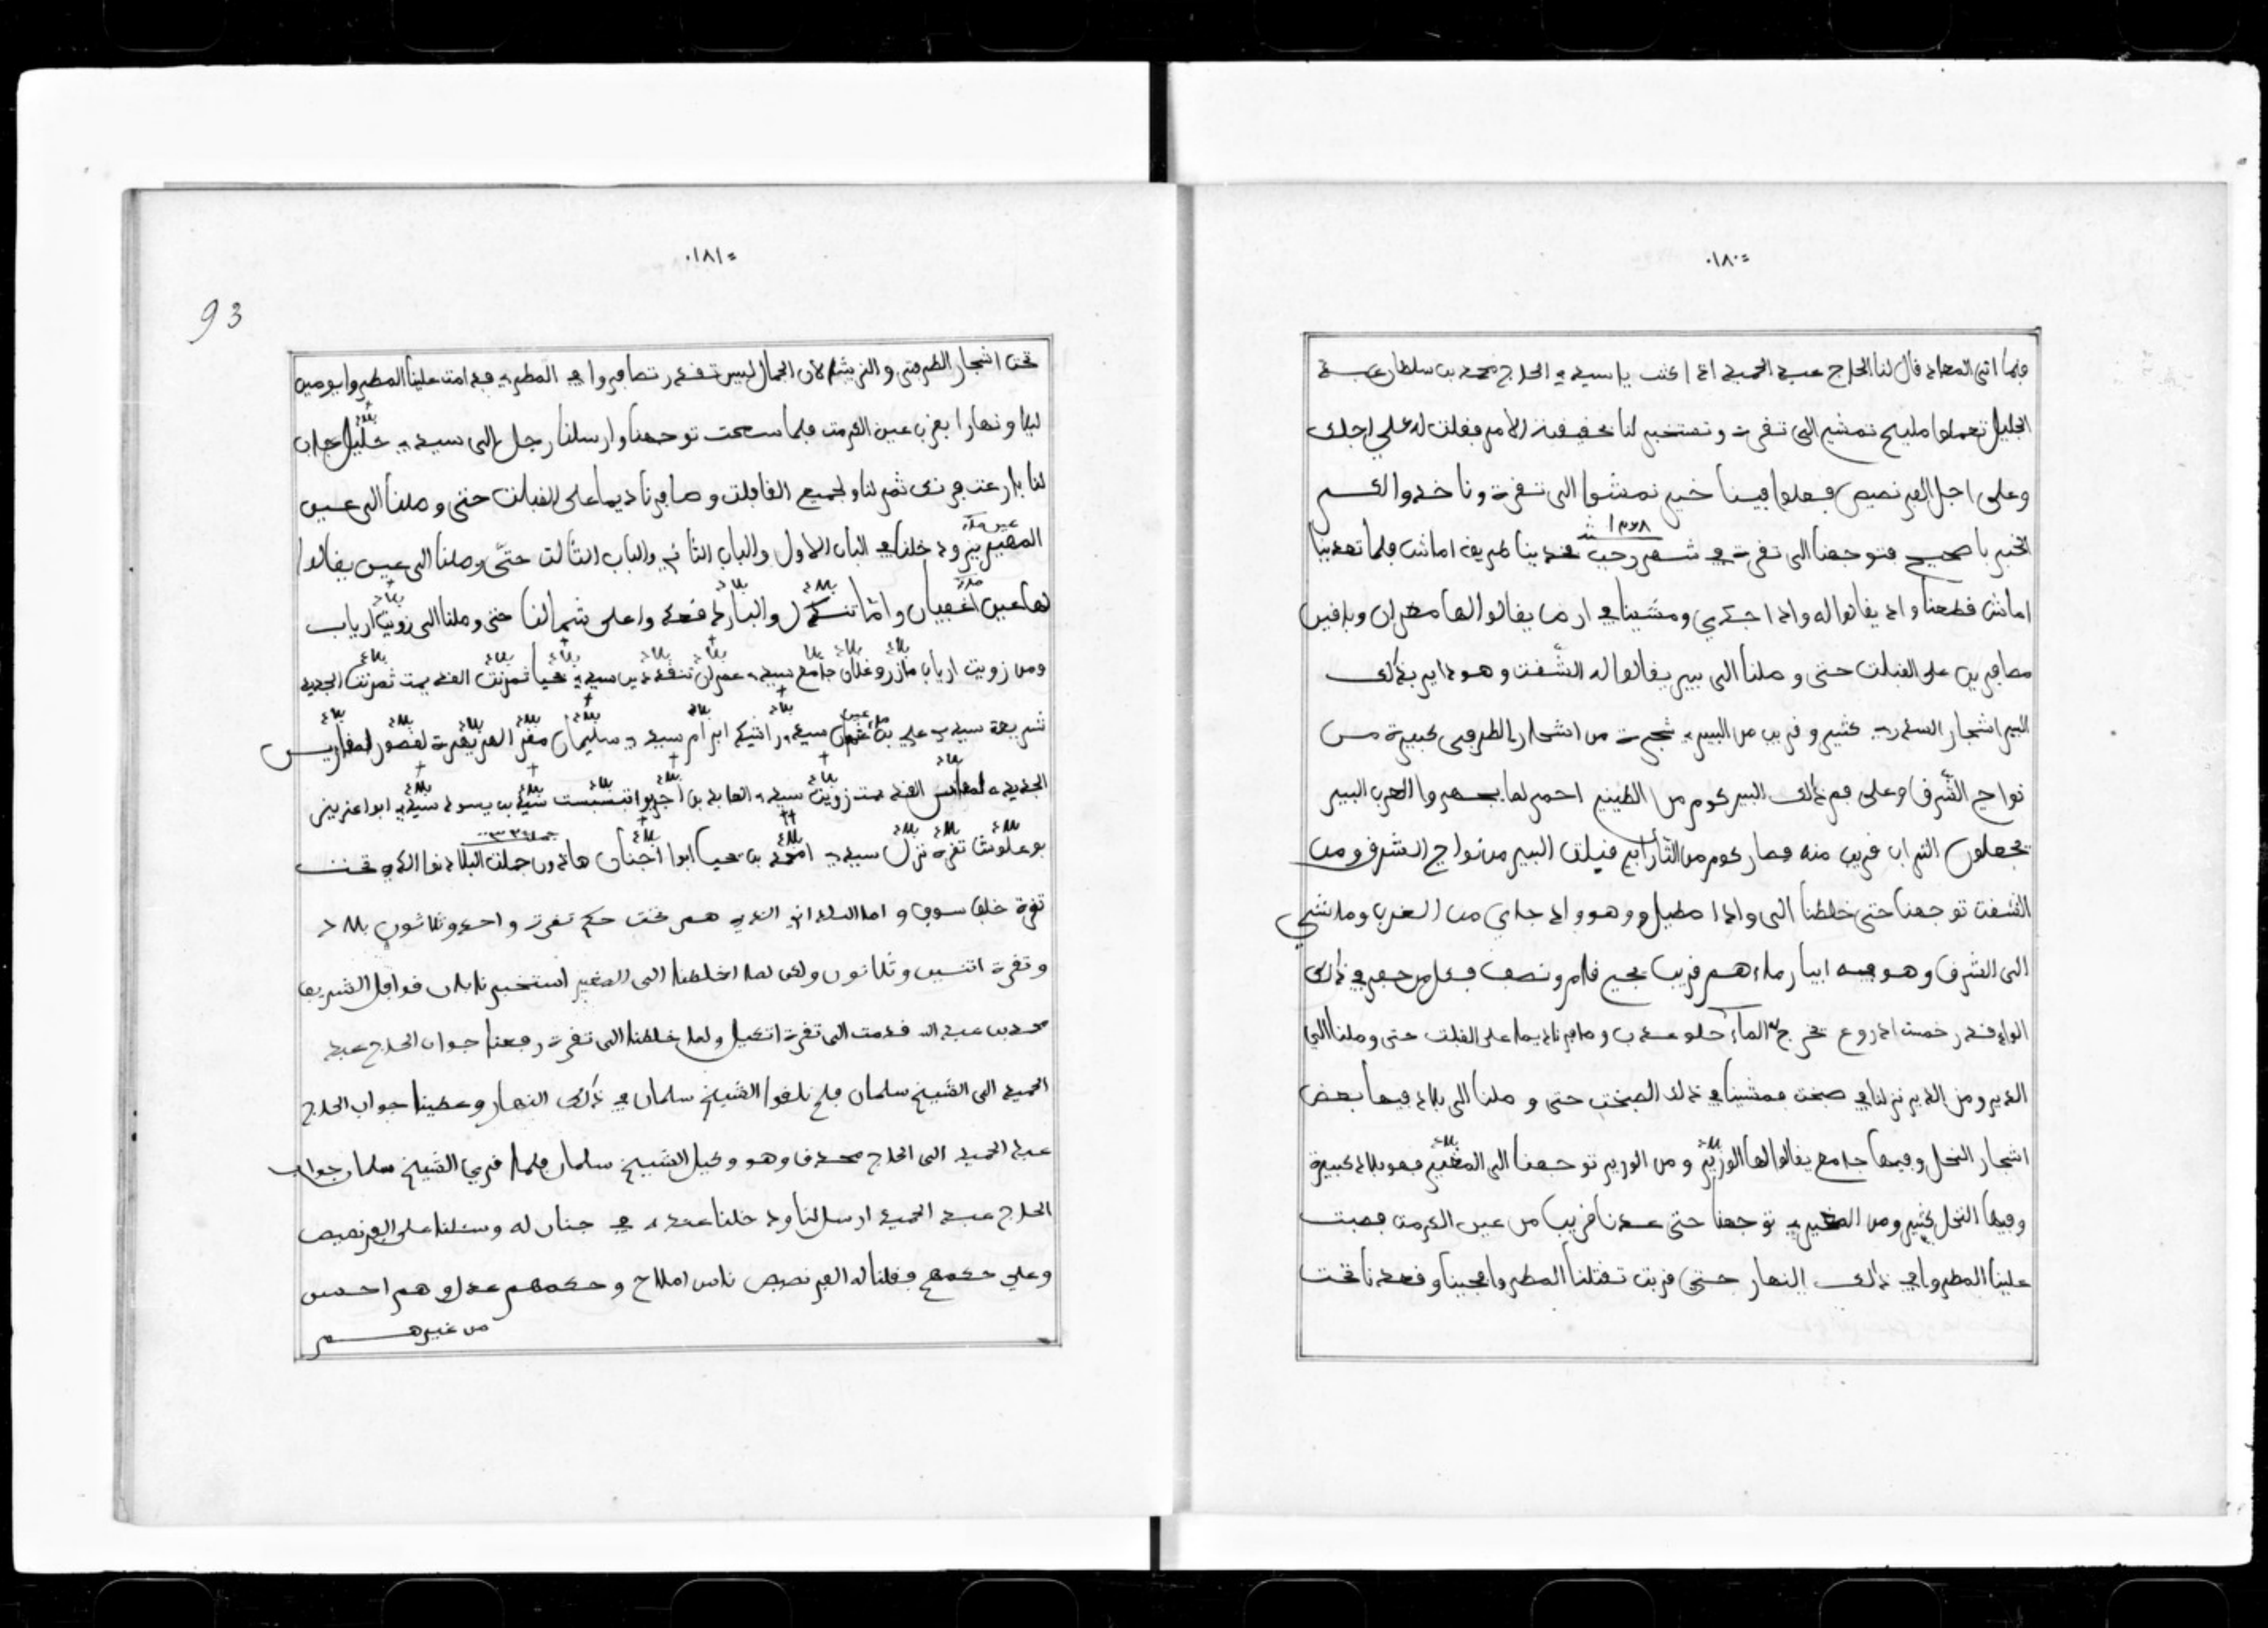 ٠١٨٠=
فلما اتى المعاد قال لنا الحاج عبد الحميد اذا كنت يا سيدي الحاج محمد بن سلطان عبد
الجليل تعملوا مليح تمشي الى تقرت و تستخبر لنا بحقيقة الامر فقلت له على اجلك
وعلى اجل الفرنصيص فعلوا فينا خير نمشوا الى تقرت وناخدوا لكم
الخبر باصحيح فتوجهنا الى تقرت في شهر رجب فدينا طريق اماش فلما تعدينا
اماش قطعنا واد يقالوا له واد اجدي ومشينا في ارض يقالوا لها مغران وباقين
مصافرين على القبلت حتى وصلنا الى بير يقالوا له الشقت وهو داير بذلك
البير اشجار السدر كثير و قريب من البير شجرت من اشجار الطرفى كبيرة من
نواح الشرق وعلى فم ذلك البير كوم من الطين احمر لما يحفروا العرب البير
يجعلون التراب قريب منه فصار كوم من التراب فبلت البير من نواح الشرق ومن
الشقت توجهنا حتى خلطنا الى واد اطيل وهو واد جاي من الغرب وماشي
الى الشرق وهو فيه ابيار ماءهم قريب يجي قام ونصف فكل من حفر في ذلك
الواد قدر خمست ادروع يخرج له الماء حلو عذب وصافرنا ديما على القبلت حتى وصلنا الى
الدير ومن الدير نزلنا في صبخت فمشينا في ذلك الصبخت حتى وصلنا الى بلاد فيها بعض
اشجار النخل وفيها جامع يقالوا لها الورير و من الورير توجهنا الى المغير فهو بلاد كبيرة
وفيها النخل كثير ومن المغير توجهنا حتى عدنا قريب من عين الكرمت فصبت
علينا المطر في ذلك النهار حتى قريب تقتلنا المطر وقعدنا تحت
٠١٨١=
93
تحت اشجار الطرفى والزيتا لان الجمال ليس تقدر تصافر في المطر فدامت علينا المطر يومين
ليلا ونهارا بقرب عين الكرمت فلما سحت توجهنا وارسلنا رجل الى سيدي خليل جاب
لنا باربعت فرنك تمر لنا ولجميع القافلت وصافرنا ديما على القبلت حتى وصلنا الى عين
المغير ودخلنا في الباب الاول والباب الثاني والباب الثالث حتى وصلنا الى عين يقالوا
لها عين اغفيان واما تندلى والبارد قعدوا على شمالنا حتى وصلنا الى زويت ارياب
ومن زويت ارياب مازر وغلان جامع سيدي عمران تنقددين سيدي يحيا تمرنت القديمت تمرنت الجديد
شريعة سيدي علي بن سيدي راشد ابرام سيدي سليمان مقر لقصور لمقارين
الجديد لمقارين القديمت زويت سيدي العابد
بوعلوش تقرت نزل سيدي امحمد بن يحيا ابوا اجنان هادون جملت البلاد
تقرت خلف سوف و اما البلدان الذي هم تحت حكم تقرت واحد وثلاثون بلاد
وتقرت اثنين وثلاثون ولكن لما اخلطنا الى المغير استخبرنا بان قوافل الشريف
محمد بن عبد الله قدمت الى تقرت اتكيل ولما خلطنا الى تقرت رفعنا جواب الحاج عبد
الحميد الى الشيخ سلمان فلم نلقوا الشيخ سلمان في ذلك النهار وعطينا جواب الحاج
عبد الحميد الى الحاج محمد وهو وكيل الشيخ سلمان فلما قرى الشيخ سلمان جواب
الحاج عبد الحميد ارسل لنا ودخلنا عنده في جنان له وسئلنا على الفرنصيص
وعلى حكمهم فقلنا له الفرنصيص ناس املاح وحكمهم عدل وهم احسن
من غيرهم